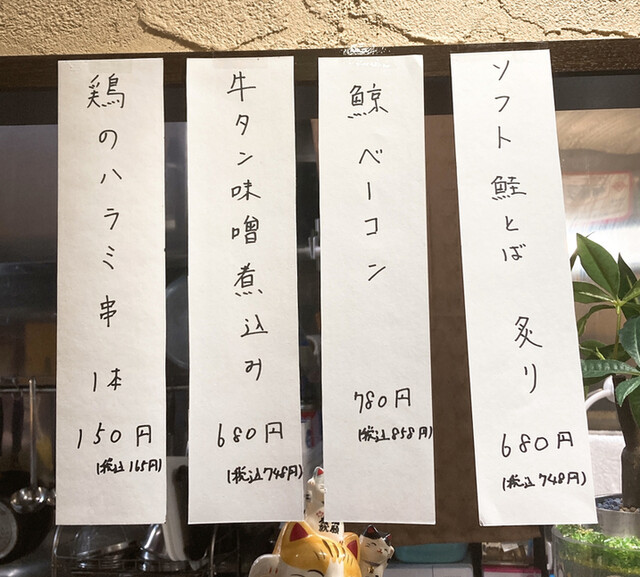 ソフト鮭とば 炙り
680円
(税込748円)
鯨ベーコン
780円
(税込858円)
牛タン味噌煮込み
680円
(税込748円)
鶏のハラミ串 1本
150円
(税込165円)